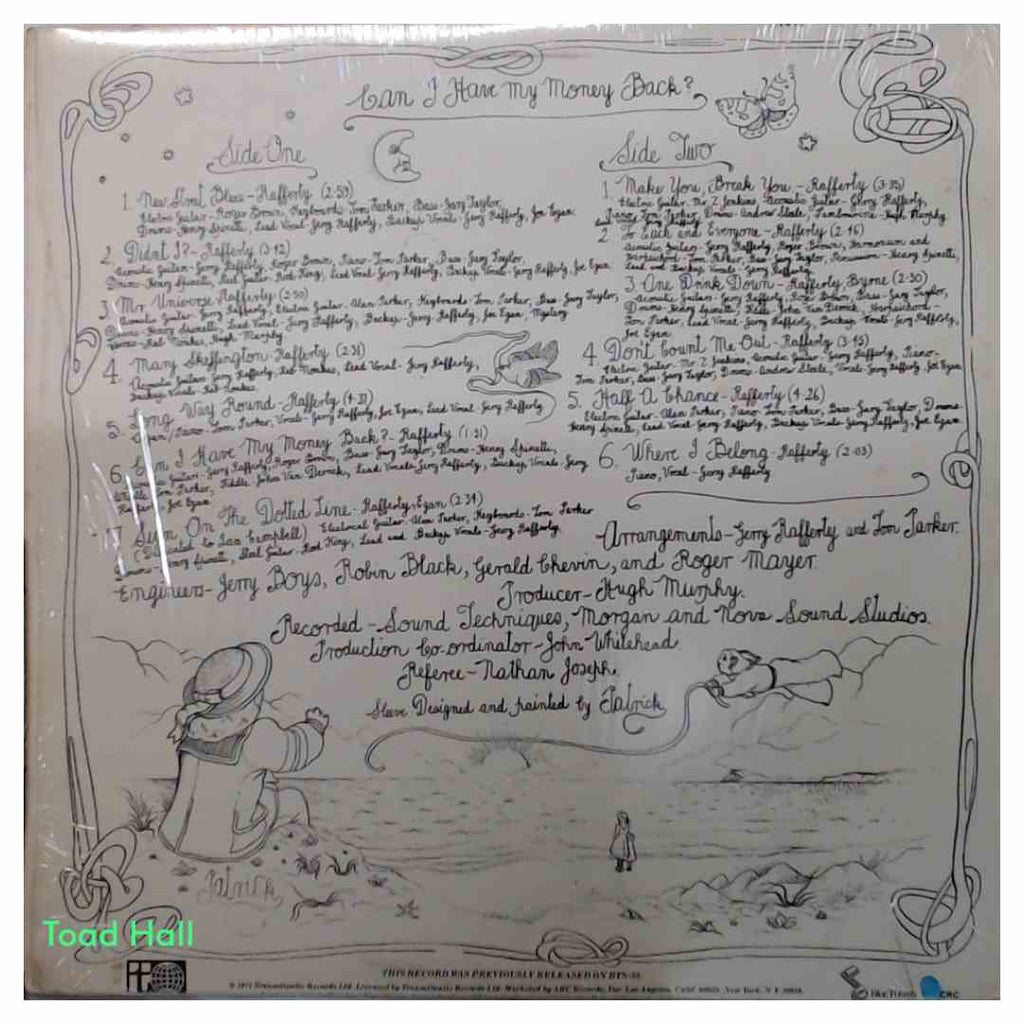 Can I Have My Money Back?
Side One
1. New Street Blues - Rafferty (2-59)
Electric Guitar - Roger Brown, Keyboards - Tom Parker, Bass - Gary Taylor,
Drums - Henry Spinetti, Lead Vocal - Gerry Rafferty, Backup Vocals - Gerry Rafferty, Joe Egan.
2. Didn't I? - Rafferty (3-12)
Acoustic Guitar - Gerry Rafferty, Roger Brown, Piano - Tom Parker, Bass - Gary Taylor,
Drums - Henry Spinetti, Steel Guitar - Rod King, Lead Vocal - Gerry Rafferty, Backup Vocals - Gerry Rafferty, Joe Egan
3. Mr. Universe - Rafferty (2-50)
Acoustic Guitar - Gerry Rafferty, Electric Guitar - Alan Parker, Keyboards - Tom Parker, Bass - Gary Taylor,
Drums - Henry Spinetti, Lead Vocal - Gerry Rafferty, Backup - Gerry Rafferty, Joe Egan, Mystery
Hugh Murphy
4. Mary Skeffington - Rafferty (2-31)
Acoustic Guitar - Gerry Rafferty, Lead Vocal - Gerry Rafferty,
Backup Vocals -
5. Long Way Round - Rafferty (4-31)
Piano - Tom Parker, Vocals - Gerry Rafferty, Joe Egan, Lead Vocal - Gerry Rafferty
6. Can I Have My Money Back? - Rafferty (1-31)
Guitar - Gerry Rafferty, Roger Brown, Bass - Gary Taylor, Drums - Henry Spinetti,
Tom Parker, Fiddle - John Van Derrick, Lead Vocal - Gerry Rafferty, Backup Vocals - Gerry
Rafferty, Joe Egan
7. Sign On The Dotted Line - Rafferty, Egan (2-34)
(Dedicated to Campbell) Electrical Guitar - Alan Parker, Keyboards - Tom Parker
Drums - Henry Spinetti, Steel Guitar - Rod King, Lead and Backup Vocals - Gerry Rafferty.
Side Two
1. Make You, Break You - Rafferty (3-35)
Electric Guitar - Mr. Z. Jenkins, Acoustic Guitar - Gerry Rafferty,
Piano - Tom Parker, Drums - Andrew Steele, Tambourine - Hugh Murphy
2. To Each and Everyone - Rafferty (2-46)
Acoustic Guitar - Gerry Rafferty, Roger Brown, Harmonium and
Harpsichord - Tom Parker, Bass - Gary Taylor, Percussion - Henry Spinetti,
Lead and Backup Vocals - Gerry Rafferty
3. One Drink Down - Rafferty, Byrne (2-30)
Acoustic Guitar - Gerry Rafferty, Roger Brown, Bass - Gary Taylor,
Drums - Henry Spinetti, Fiddle - John Van Derrick, Harpsichord -
Tom Parker, Lead Vocal - Gerry Rafferty, Backup Vocals - Gerry Rafferty,
Joe Egan
4. Don't Count Me Out - Rafferty (3-45)
Electric Guitar - Mr. Z. Jenkins, Acoustic Guitar - Gerry Rafferty, Piano -
Tom Parker, Bass - Gary Taylor, Drums - Andrew Steele, Vocals - Gerry Rafferty, Joe Egan
5. Half A Chance - Rafferty (4-26)
Electric Guitar - Alan Parker, Piano - Tom Parker, Bass - Gary Taylor, Drums -
Henry Spinetti, Lead Vocal - Gerry Rafferty, Backup Vocals - Gerry Rafferty, Joe Egan.
6. Where I Belong - Rafferty (2-03)
Piano, Vocal - Gerry Rafferty
Arrangements - Gerry Rafferty and Tom Parker.
Engineers - Jerry Boys, Robin Black, Gerald Chevin, and Roger Mayer.
Producer - Hugh Murphy.
Recorded - Sound Techniques, Morgan and Nova Sound Studios.
Production Co-ordinator - John Whitehead.
Referee - Nathan Joseph.
Sleeve Designed and painted by Patrick
Patrick
Toad Hall
THIS RECORD WAS PREVIOUSLY RELEASED ON BTS-58
© 1971 Transatlantic Records Ltd. Licensed by Transatlantic Records Ltd. Marketed by ABC Records, Inc. Los Angeles, Calif. 90069, New York, N.Y. 10019.
Blue Thumb
CRC